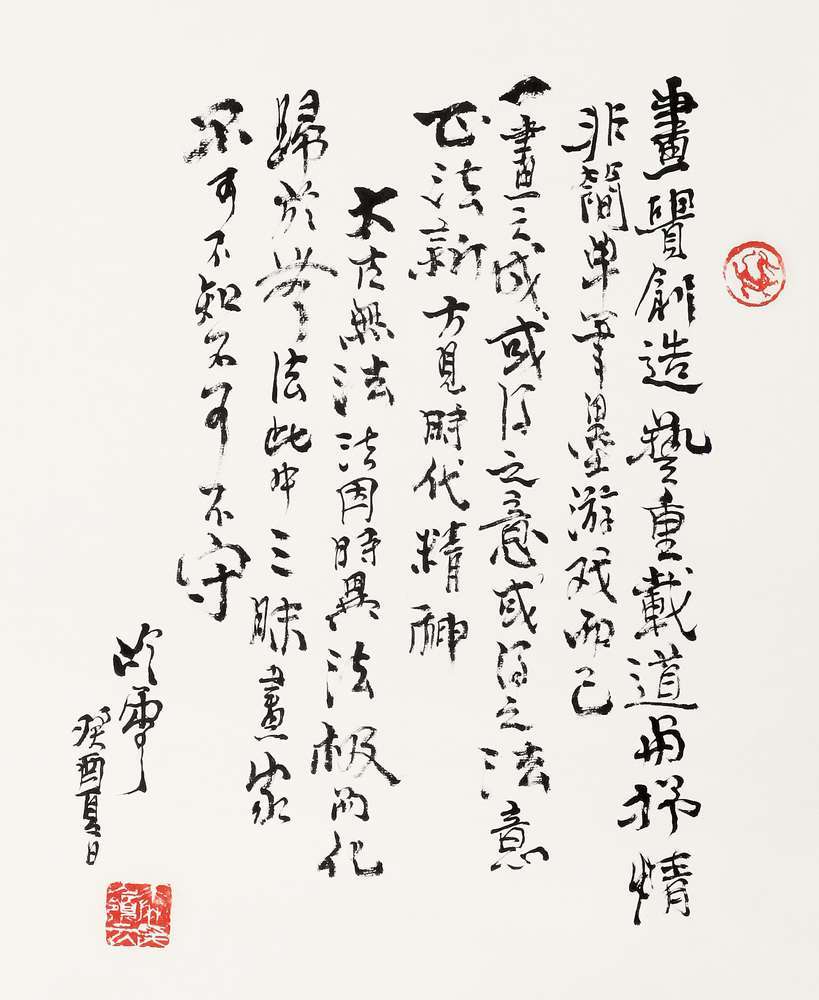 畫貴創造藝重載道与抒情
非簡單筆墨游戏而已
一畫之成或得之意或得之法意
正法新方見時代精神
大古無法法因時異法極而化
歸於無法此中三昧畫家
不可不知不可不守
癸酉夏日